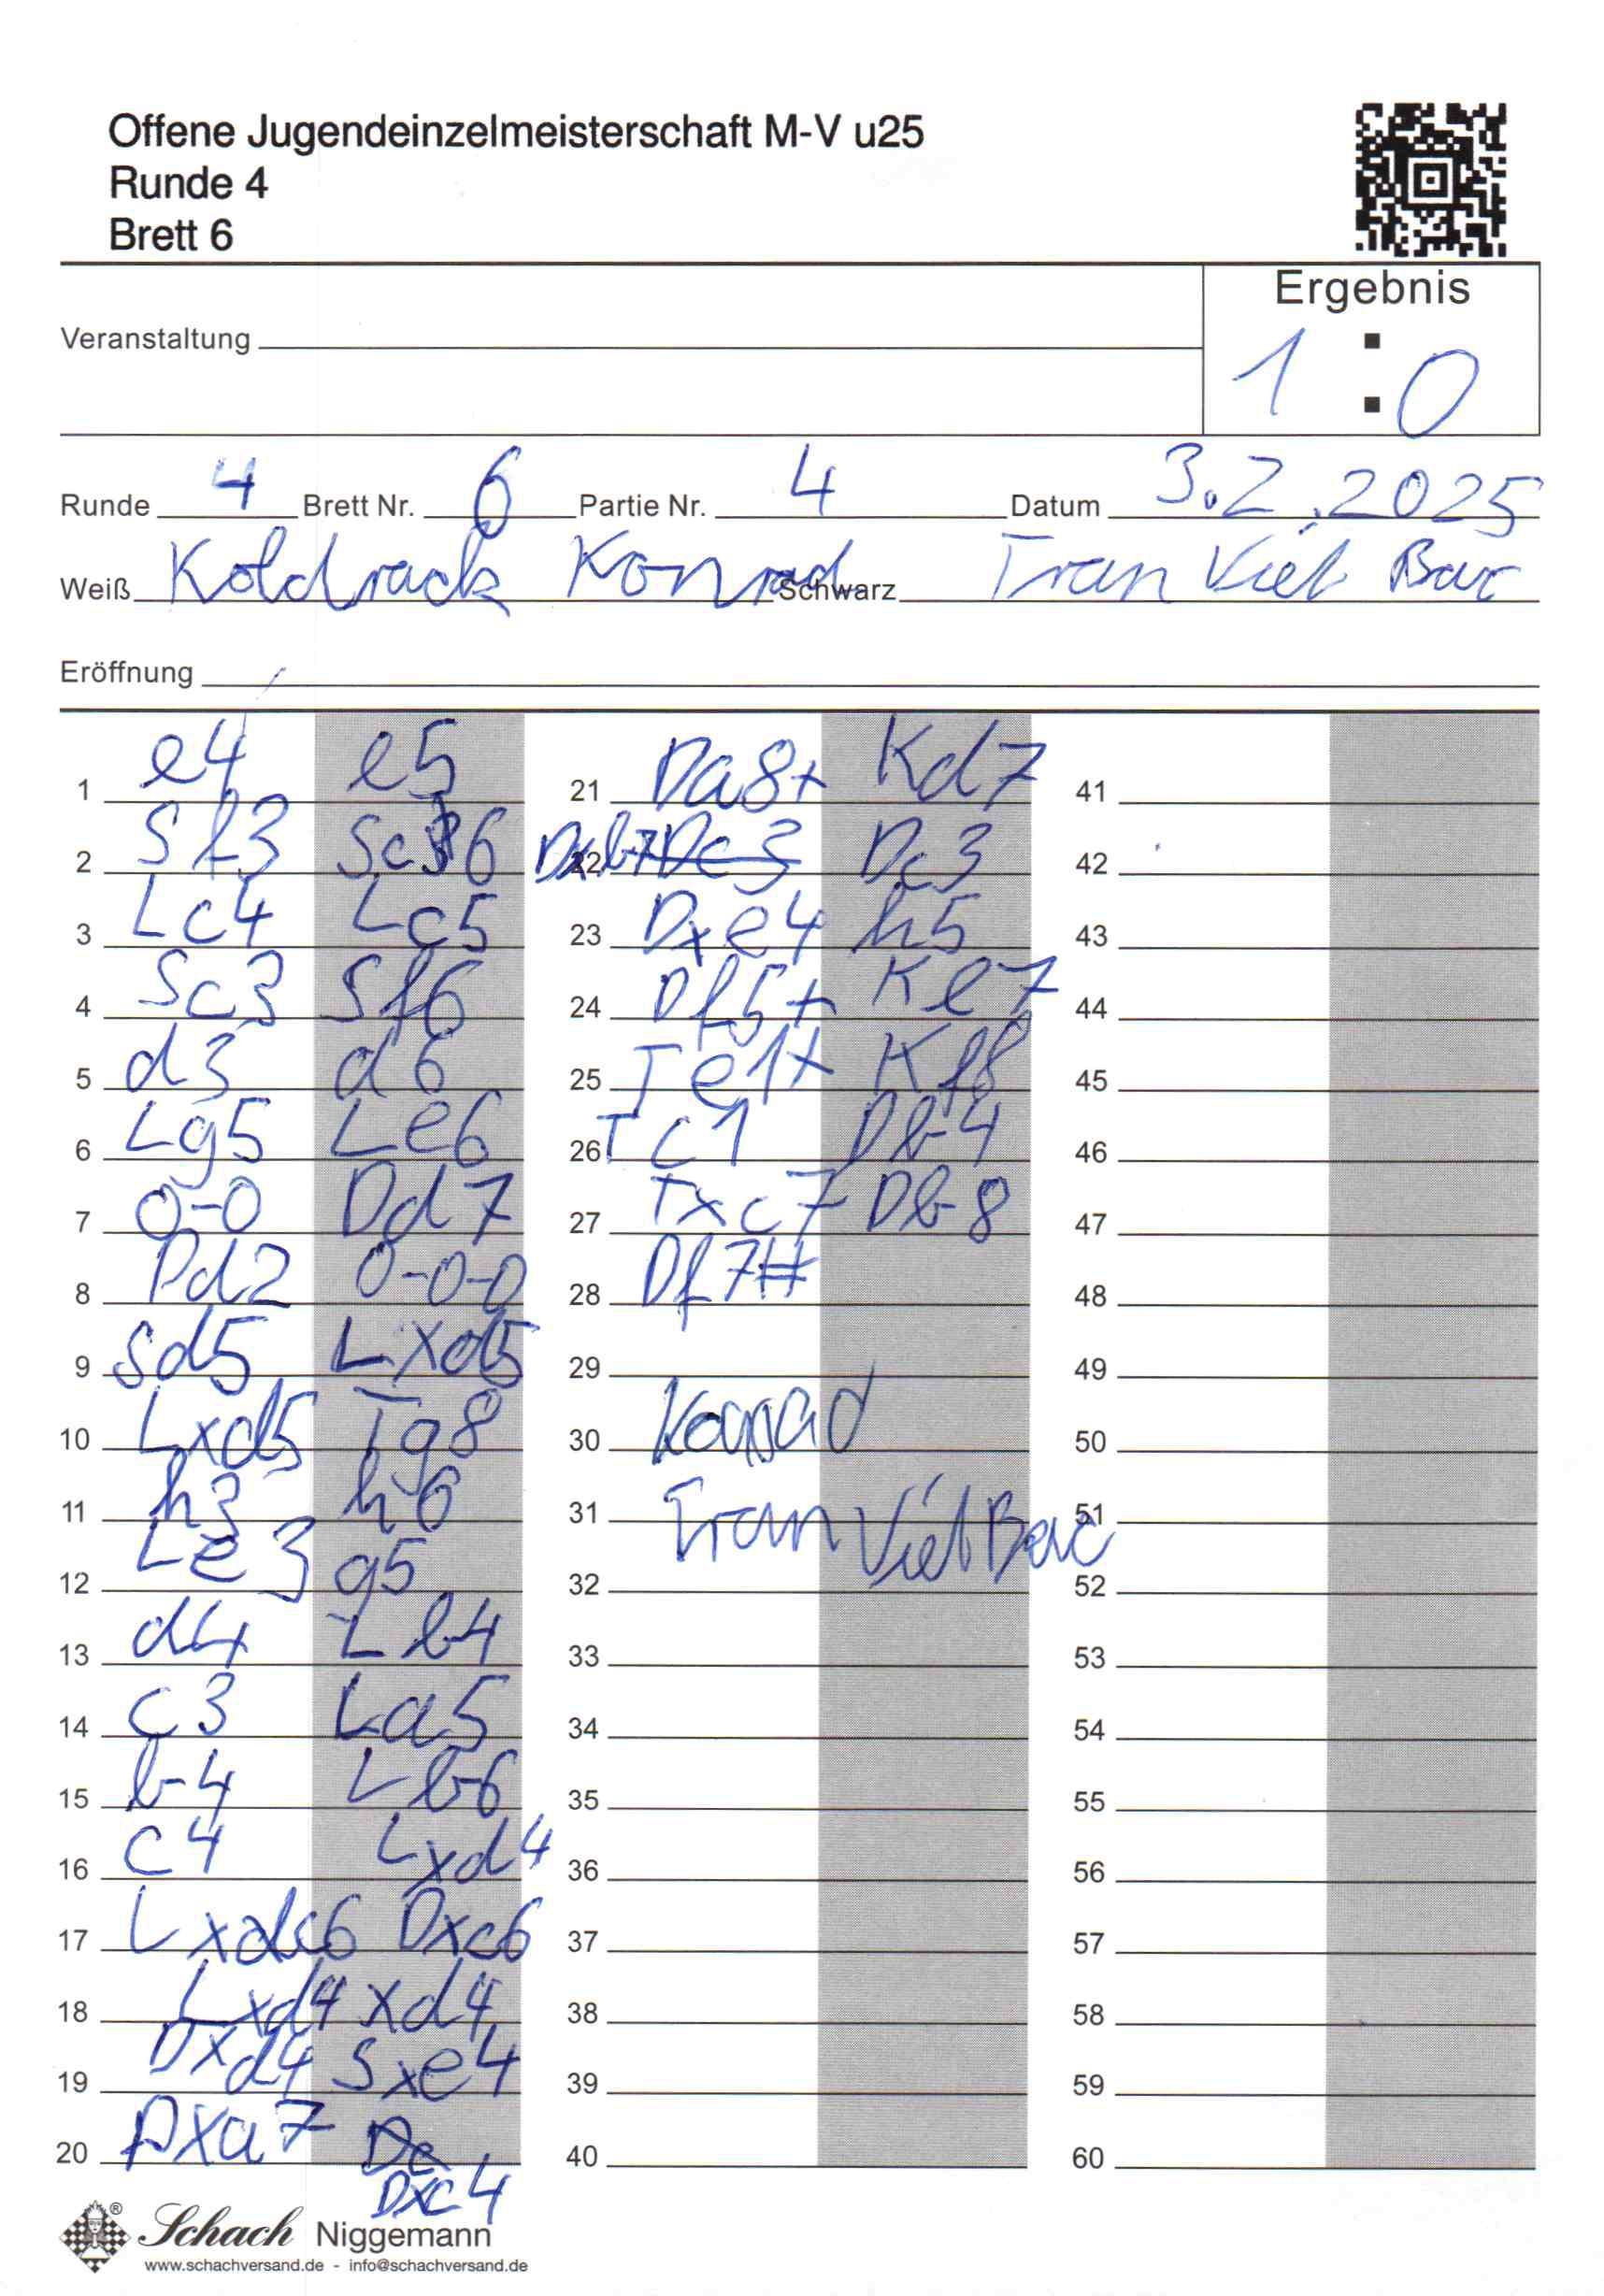 Offene Jugendeinzelmeisterschaft M-V u25
Runde 4
Brett 6
Ergebnis
Veranstaltung
1 : 0
Runde 4 Brett Nr. 6 Partie Nr. 4 Datum 3.2.2025
Weiß Koldrack Konrad Schwarz Tran Viet Bac
Eröffnung
1 e4 e5 21 Da8+ Kd7 41
2 Sf3 Sc6 22 Dxb7 Dc3 Dc3 42
3 Lc4 Lc5 23 Dxe4 h5 43
4 Sc3 Sf6 24 Df5+ Ke7 44
5 d3 d6 25 Te1+ Kf8 45
6 Lg5 Le6 26 Tc1 Db4 46
7 0-0 Dd7 27 Txc7 Db8 47
8 Dd2 0-0-0 28 Df7# 48
9 Sd5 Lxd5 29 49
10 Lxd5 Tg8 30 Konrad 50
11 h3 h6 31 Tran Viet Bac 51
12 Le3 g5 32 52
13 d4 Lb4 33 53
14 c3 La5 34 54
15 b4 Lb6 35 55
16 c4 Lxd4 36 56
17 Lxc6 Dxc6 37 57
18 Lxd4 xd4 38 58
19 Dxd4 Sxe4 39 59
20 Dxa7 De 40 60
Dxc4
Schach Niggemann
www.schachversand.de - info@schachversand.de